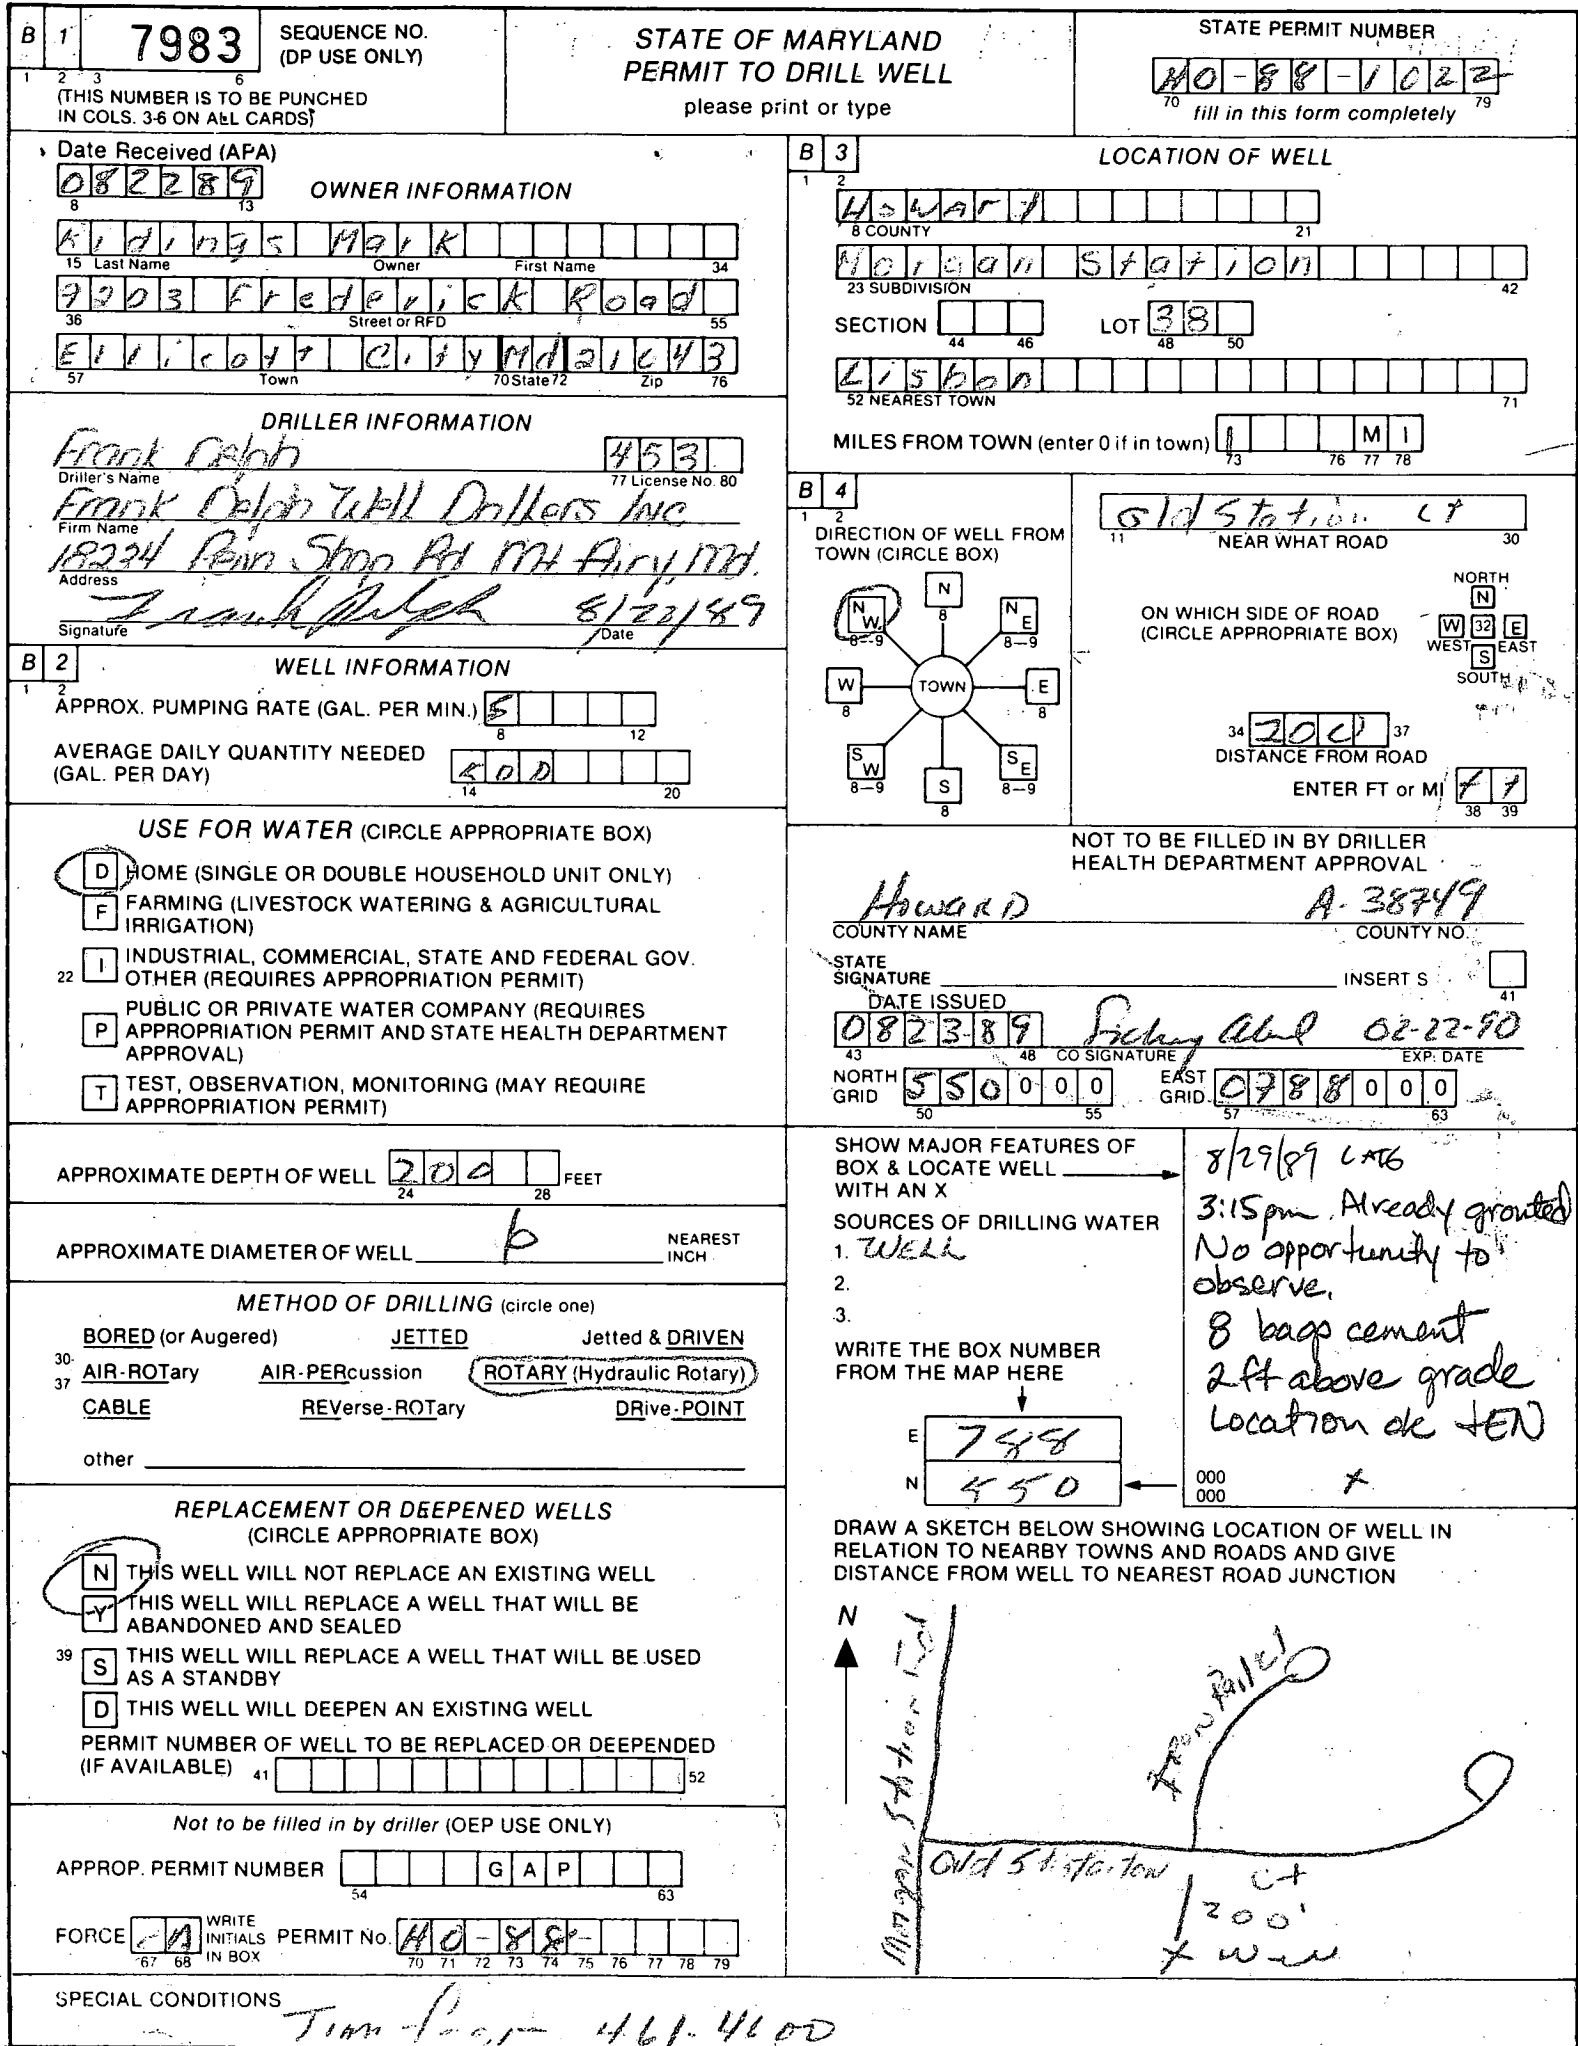 B 1 7983 SEQUENCE NO.
(DP USE ONLY)
1 2 3 6
(THIS NUMBER IS TO BE PUNCHED
IN COLS. 3-6 ON ALL CARDS)
STATE OF MARYLAND
PERMIT TO DRILL WELL
please print or type
STATE PERMIT NUMBER
HO-88-1022
70 79
fill in this form completely
Date Received (APA)
082289
8 13
OWNER INFORMATION
Kidings Mark
15 Last Name Owner First Name 34
9203 Frederick Road
36 Street or RFD 55
Ellicott City Md 21643
57 Town 70 State 72 Zip 76
DRILLER INFORMATION
Frank Delph 453
Driller's Name 77 License No. 80
Frank Delph Well Drillers Inc
Firm Name
18234 Penn Shop Rd Mt Airy, Md.
Address
Frank Delph 8/22/89
Signature Date
B 2 WELL INFORMATION
1 2
APPROX. PUMPING RATE (GAL. PER MIN.) 5
8 12
AVERAGE DAILY QUANTITY NEEDED
(GAL. PER DAY) 500
14 20
USE FOR WATER (CIRCLE APPROPRIATE BOX)
D HOME (SINGLE OR DOUBLE HOUSEHOLD UNIT ONLY)
F FARMING (LIVESTOCK WATERING & AGRICULTURAL
IRRIGATION)
22 I INDUSTRIAL, COMMERCIAL, STATE AND FEDERAL GOV.
OTHER (REQUIRES APPROPRIATION PERMIT)
P PUBLIC OR PRIVATE WATER COMPANY (REQUIRES
APPROPRIATION PERMIT AND STATE HEALTH DEPARTMENT
APPROVAL)
T TEST, OBSERVATION, MONITORING (MAY REQUIRE
APPROPRIATION PERMIT)
APPROXIMATE DEPTH OF WELL 200 FEET
24 28
APPROXIMATE DIAMETER OF WELL 6 NEAREST
INCH
METHOD OF DRILLING (circle one)
BORED (or Augered) JETTED Jetted & DRIVEN
30-37 AIR-ROTary AIR-PERcussion ROTARY (Hydraulic Rotary)
CABLE REVerse-ROTary DRive-POINT
other
REPLACEMENT OR DEEPENED WELLS
(CIRCLE APPROPRIATE BOX)
N THIS WELL WILL NOT REPLACE AN EXISTING WELL
Y THIS WELL WILL REPLACE A WELL THAT WILL BE
ABANDONED AND SEALED
39 S THIS WELL WILL REPLACE A WELL THAT WILL BE USED
AS A STANDBY
D THIS WELL WILL DEEPEN AN EXISTING WELL
PERMIT NUMBER OF WELL TO BE REPLACED OR DEEPENDED
(IF AVAILABLE) 41 52
Not to be filled in by driller (OEP USE ONLY)
APPROP. PERMIT NUMBER G A P
54 63
FORCE WRITE INITIALS IN BOX PERMIT No. HO-88-
67 68 70 71 72 73 74 75 76 77 78 79
B 3 LOCATION OF WELL
1 2
Howard
8 COUNTY 21
Morgan Station
23 SUBDIVISION 42
SECTION LOT 38
44 46 48 50
Lisbon
52 NEAREST TOWN 71
MILES FROM TOWN (enter 0 if in town) 1 M I
73 76 77 78
B 4
1 2
DIRECTION OF WELL FROM
TOWN (CIRCLE BOX)
N W N N E
8-9 8 8-9
W TOWN E
8 8
S W S S E
8-9 8 8-9
Old Station Ct
11 NEAR WHAT ROAD 30
ON WHICH SIDE OF ROAD
(CIRCLE APPROPRIATE BOX)
NORTH
N
W 32 E
WEST EAST
S
SOUTH
34 200 37
DISTANCE FROM ROAD
ENTER FT or MI ft
38 39
NOT TO BE FILLED IN BY DRILLER
HEALTH DEPARTMENT APPROVAL
Howard A-38749
COUNTY NAME COUNTY NO.
STATE
SIGNATURE INSERT S
41
DATE ISSUED
082389 02-22-90
43 48 CO SIGNATURE EXP. DATE
NORTH GRID 550000 EAST GRID 0788000
50 55 57 63
SHOW MAJOR FEATURES OF
BOX & LOCATE WELL
WITH AN X
SOURCES OF DRILLING WATER
1. WELL
2.
3.
WRITE THE BOX NUMBER
FROM THE MAP HERE
E 788
N 550
8/29/89
3:15pm. Already grouted
No opportunity to
observe.
8 bags cement
2 ft above grade
Location ok
000
000 X
DRAW A SKETCH BELOW SHOWING LOCATION OF WELL IN
RELATION TO NEARBY TOWNS AND ROADS AND GIVE
DISTANCE FROM WELL TO NEAREST ROAD JUNCTION
N
Morgan Station Rd
Iron Rail Ct
Old Station Ct
200'
X Well
SPECIAL CONDITIONS
461-4600